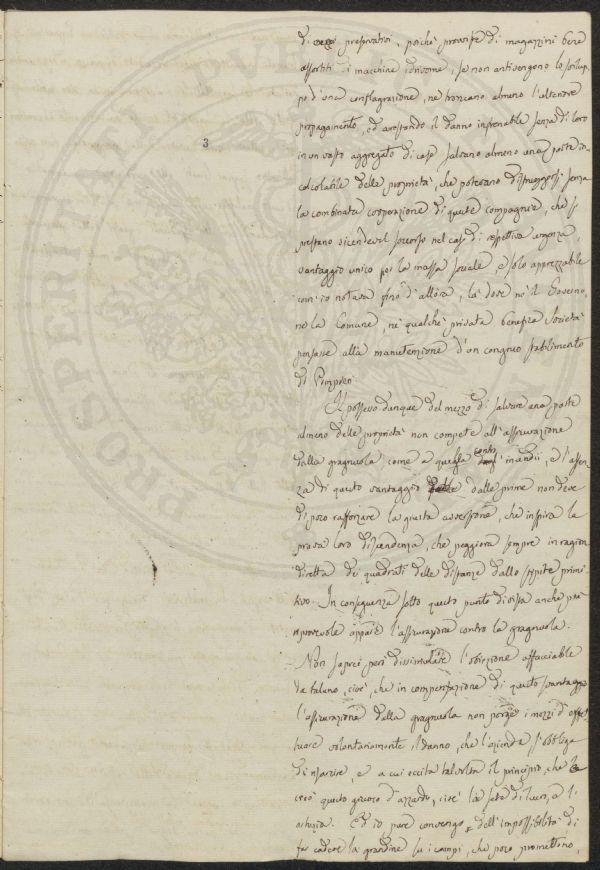 3
di essi preservativi, poichè provviste di magazzini bene
assortiti di macchine idonee, se non antivengono lo svilup-
po d'una conflagrazione, ne troncano almeno l'ulteriore
propagamento, ed arrestando il danno infrenabile senza di loro
in un vasto aggregato di case salvano almeno una parte in-
calcolabile delle proprietà, che potevano distruggersi senza
la combinata cooperazione di queste compagnie, che si
prestano vicendevol soccorso nel caso di rispettiva urgenza,
vantaggio unico per la massa sociale, e solo apprezzabile
com'io notava fino d'allora, là dove nè il Governo,
nè la Comune, nè qualche privata benefica Società
pensasse alla manutenzione d'un congruo stabilimento
di Pompieri
Il possesso dunque del mezzo di salvare una parte
almeno delle proprietà non compete all'assicurazione
dalla gragnuola, come a quella contro l'incendii, e l'assen-
za di questo vantaggio dalle prime non deve
di poco rafforzare la giusta avversione, che inspira la
prava loro discendenza, che peggiora sempre in ragion
diretta de' quadrati delle distanze dallo stipite primi-
tivo. In conseguenza sotto questo punto di vista anche più
riprovevole appare l'assicurazione contro la gragnuola.
Non saprei però dissimulare l'obiezione affacciabile
da taluno, cioè, che in compensazione di questo svantaggio
l'assicurazione della gragnuola non porge i mezzi d'effet-
tuare volontariamente il danno, che l'azienda s'obbliga
di risarcire, e a cui eccita talvolta il principio, che
creò questo giuoco d'azzardo, cioè la sete di lucro, e l'
astuzia. Ed io pure convengo dell'impossibilità di
far cadere la grandine su i campi, che poco promettono,